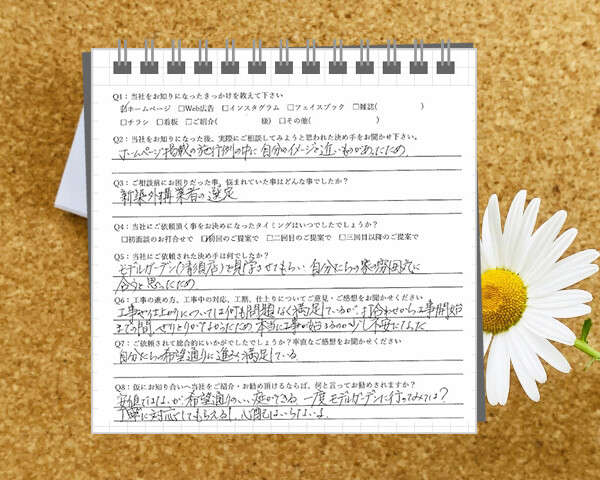 Q1：当社をお知りになったきっかけを教えて下さい
☑ホームページ　□Web広告　□インスタグラム　□フェイスブック　□雑誌(　　　　)
□チラシ　□看板　□ご紹介(　　　　様)　□その他(　　　　)
Q2：当社をお知りになった後、実際にご相談してみようと思われた決め手をお聞かせ下さい。
ホームページ掲載の施行例の中に自分のイメージと近いものがあったため
Q3：ご相談前にお困りだった事、悩まれていた事はどんな事でしたか？
新築外構業者の選定
Q4：当社にご依頼頂く事をお決めになったタイミングはいつでしたでしょうか？
□初面談のお打合せで　☑初回のご提案で　□二回目のご提案で　□三回目以降のご提案で
Q5：当社にご依頼された決め手は何でしたか？
モデルガーデン(清須店)を見学させてもらい、自分たちの家の雰囲気に
合うと思ったため
Q6：工事の進め方、工事中の対応、工期、仕上りについてご意見・ご感想をお聞かせください
工事や仕上がりについては何も問題なく満足しているが、打合わせから工事開始
までの間、やりとりがなかったため、本当に工事が始まるのか少し不安になった
Q7：ご依頼されて総合的にいかがでしたでしょうか？率直なご感想をお聞かせください
自分たちの希望通りに進み満足している。
Q8：仮にお知り合いへ当社をご紹介・お勧め頂けるならば、何と言ってお勧めされますか？
安価ではないが希望通りのいい庭ができる。一度モデルガーデンに行ってみては？
丁寧に対応してもらえるし、心配はいらないよ。